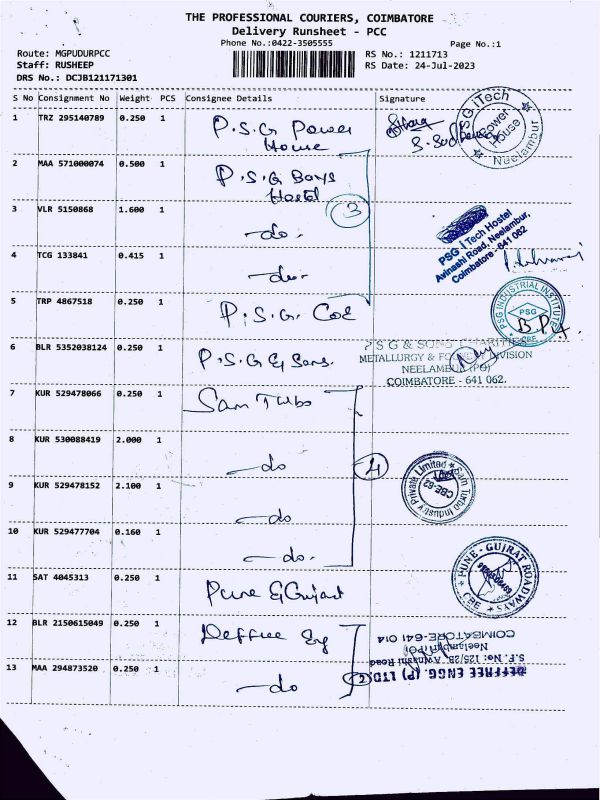 THE PROFESSIONAL COURIERS, COIMBATORE
Delivery Runsheet - PCC
Phone No.:0422-3505555
Page No.:1
Route: MGPUDURPCC
RS No.: 1211713
Staff: RUSHEEP
RS Date: 24-Jul-2023
DRS No.: DCJB121171301
S No Consignment No Weight PCS Consignee Details Signature
1 TRZ 295140789 0.250 1 P.S.G Power
House
PSG iTech
Power
House
Neelambur
2 MAA 571000074 0.500 1 P.S.G Boys
Hostel
3
3 VLR 5150868 1.600 1 -do-
PSG iTech Hostel
Avinashi Road, Neelambur,
Coimbatore - 641 062
4 TCG 133841 0.415 1 -do-
5 TRP 4867518 0.250 1 P.S.G. CoE
PSG INDUSTRIAL INSTITUTE
PSG
CBE
6 BLR 5352038124 0.250 1 P.S.G & Sons.
PSG & SONS' CHARITIES
METALLURGY & FOUNDRY DIVISION
NEELAMBUR (PO)
COIMBATORE - 641 062.
7 KUR 529478066 0.250 1 Sam Turbo
8 KUR 530088419 2.000 1 -do
4
9 KUR 529478152 2.100 1 -do
Sam Turbo Industry Private Limited
CBE-62
10 KUR 529477704 0.160 1 -do.
11 SAT 4045313 0.250 1 Pune & Gujart
PUNE - GUJRAT ROADWAYS
CBE
12 BLR 2150615049 0.250 1 Deffree Eg
13 MAA 294873520 0.250 1 -do
2
DEFFREE ENGG. (P) LTD.
S.F. No: 125/2B, Avinashi Road
Neelambur(PO)
COIMBATORE-641 014